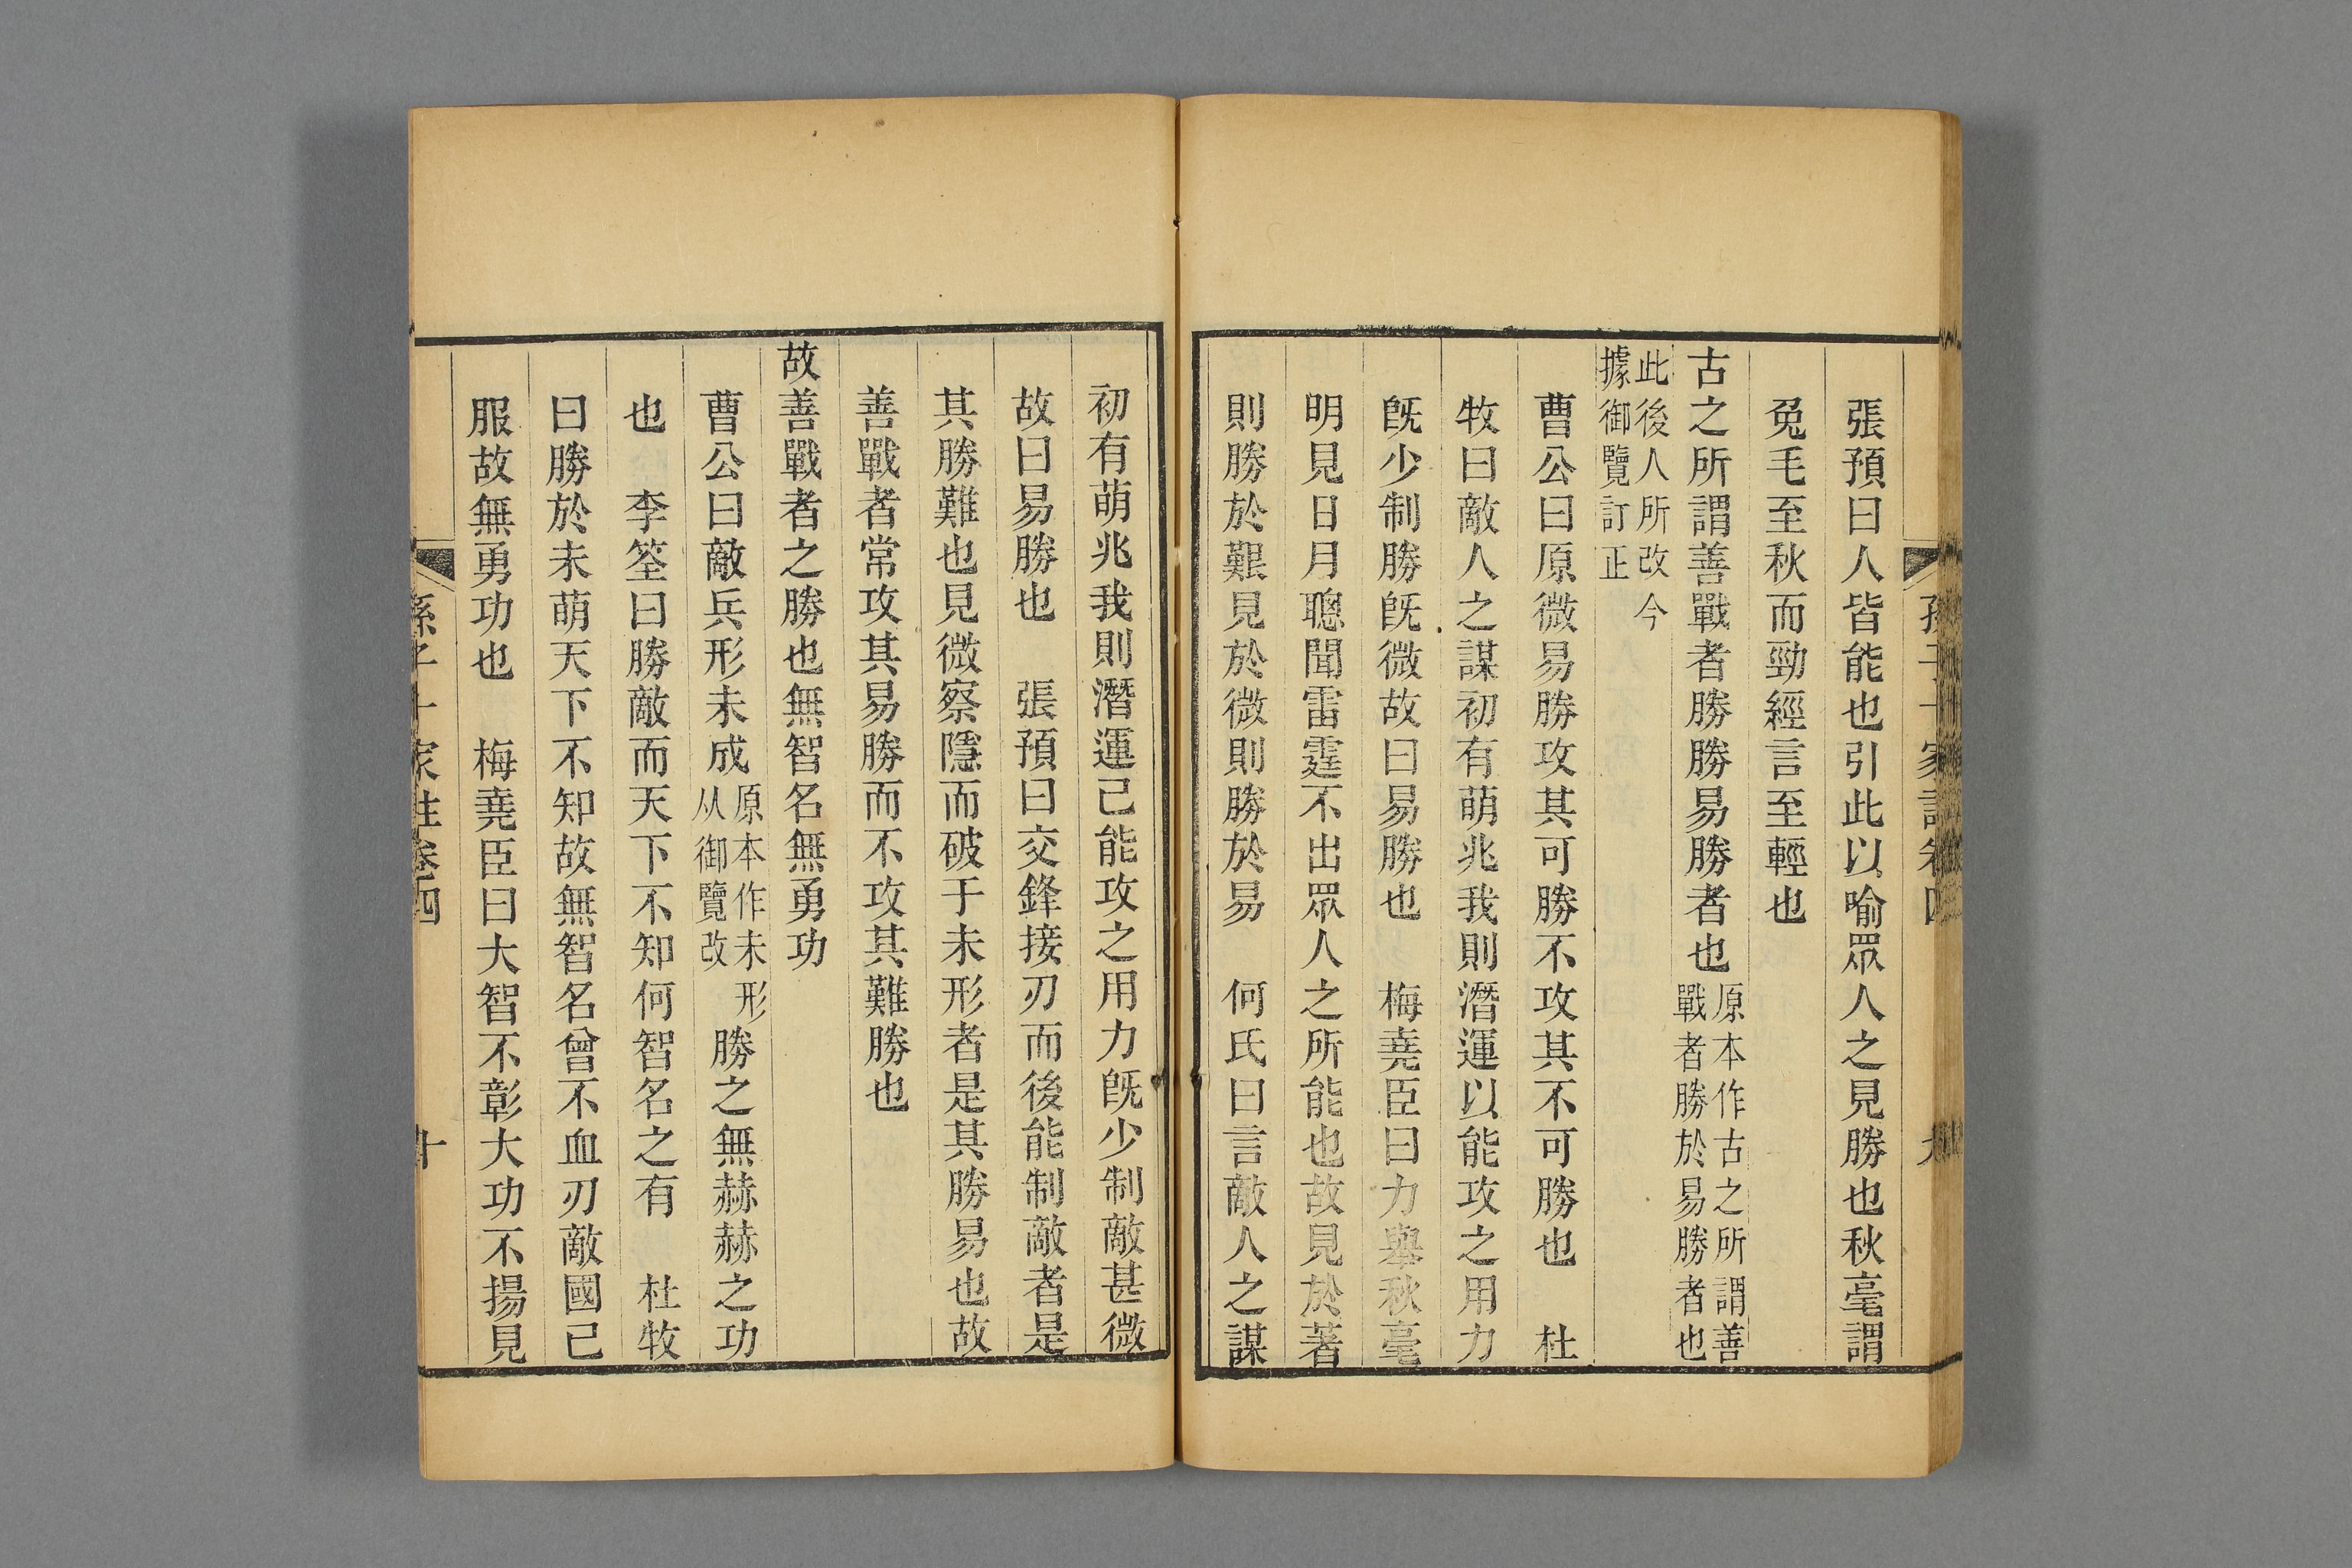 張預曰人皆能也引此以喻眾人之見勝也秋毫謂
兔毛至秋而勁經言至輕也
古之所謂善戰者勝勝易勝者也原本作古之所謂善戰者勝於易勝者也
此後人所改今據御覽訂正
曹公曰原微易勝攻其可勝不攻其不可勝也　杜
牧曰敵人之謀初有萌兆我則潛運以能攻之用力
旣少制勝旣微故曰易勝也　梅堯臣曰力舉秋毫
明見日月聰聞雷霆不出眾人之所能也故見於著
則勝於艱見於微則勝於易　何氏曰言敵人之謀
初有萌兆我則潛運已能攻之用力旣少制敵甚微
故曰易勝也　張預曰交鋒接刃而後能制敵者是
其勝難也見微察隱而破于未形者是其勝易也故
善戰者常攻其易勝而不攻其難勝也
故善戰者之勝也無智名無勇功
曹公曰敵兵形未成原本作未形从御覽改勝之無赫赫之功
也　李筌曰勝敵而天下不知何智名之有　杜牧
曰勝於未萌天下不知故無智名曾不血刃敵國已
服故無勇功也　梅堯臣曰大智不彰大功不揚見
孫子十家註卷四　十